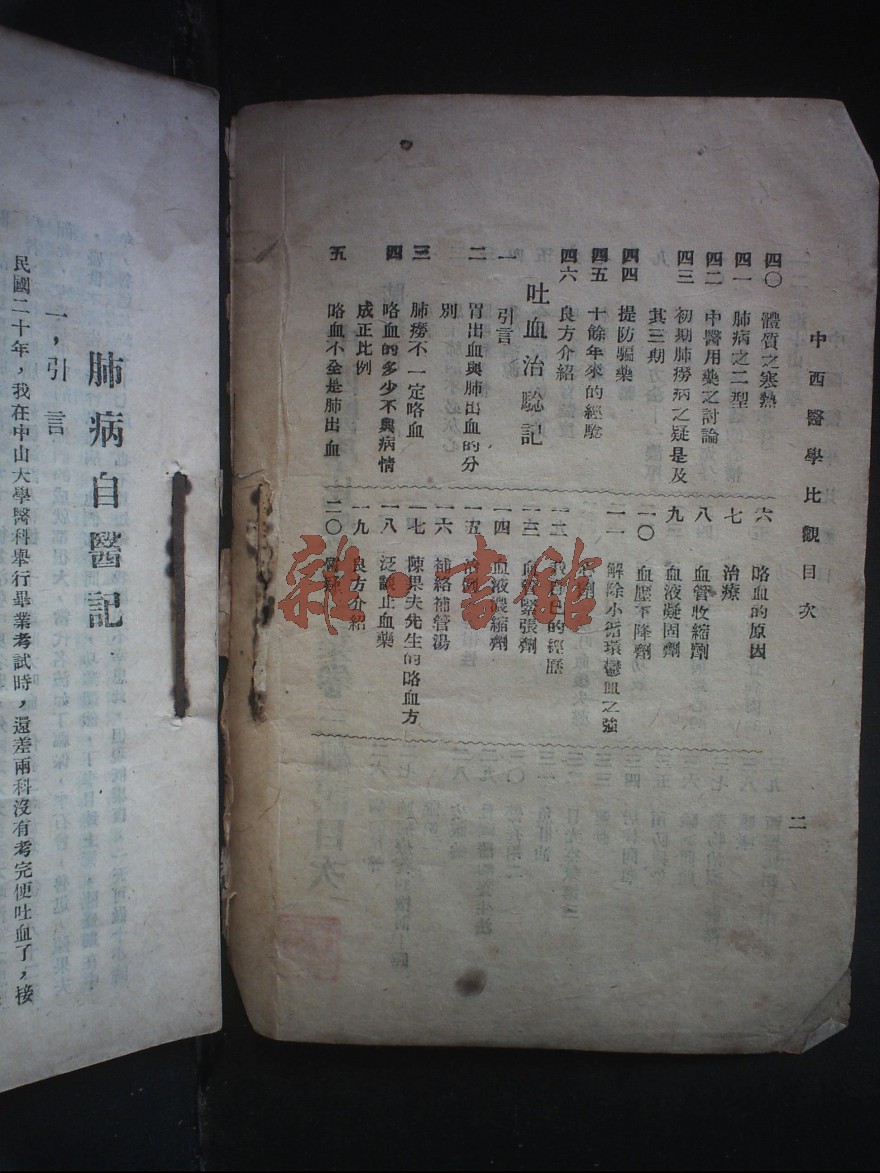 中西醫學比觀目次
二
四〇 體質之寒熱
四一 肺病之二型
四二 中醫用藥之討論
四三 初期肺癆病之疑是及
其三期
四四 提防騙藥
四五 十餘年來的經驗
四六 良方介紹
吐血治驗記
一 引言
二 胃出血與肺出血的分
別
三 肺癆不一定咯血
四 咯血的多少不與病情
成正比例
五 咯血不全是肺出血
六 咯血的原因
七 治療
八 血管收縮劑
九 血液凝固劑
一〇 血壓下降劑
一一 解除小循環鬱血之強
一二 我自己的經歷
一三 血管緊張劑
一四 血液濃縮劑
一五 治例
一六 補絡補管湯
一七 陳果夫先生的咯血方
一八 泛談止血藥
一九 良方介紹
二〇
雜·書館
肺病自醫記
一，引言
民國二十年，我在中山大學醫科舉行畢業考試時，還差兩科沒有考完便吐血了，接